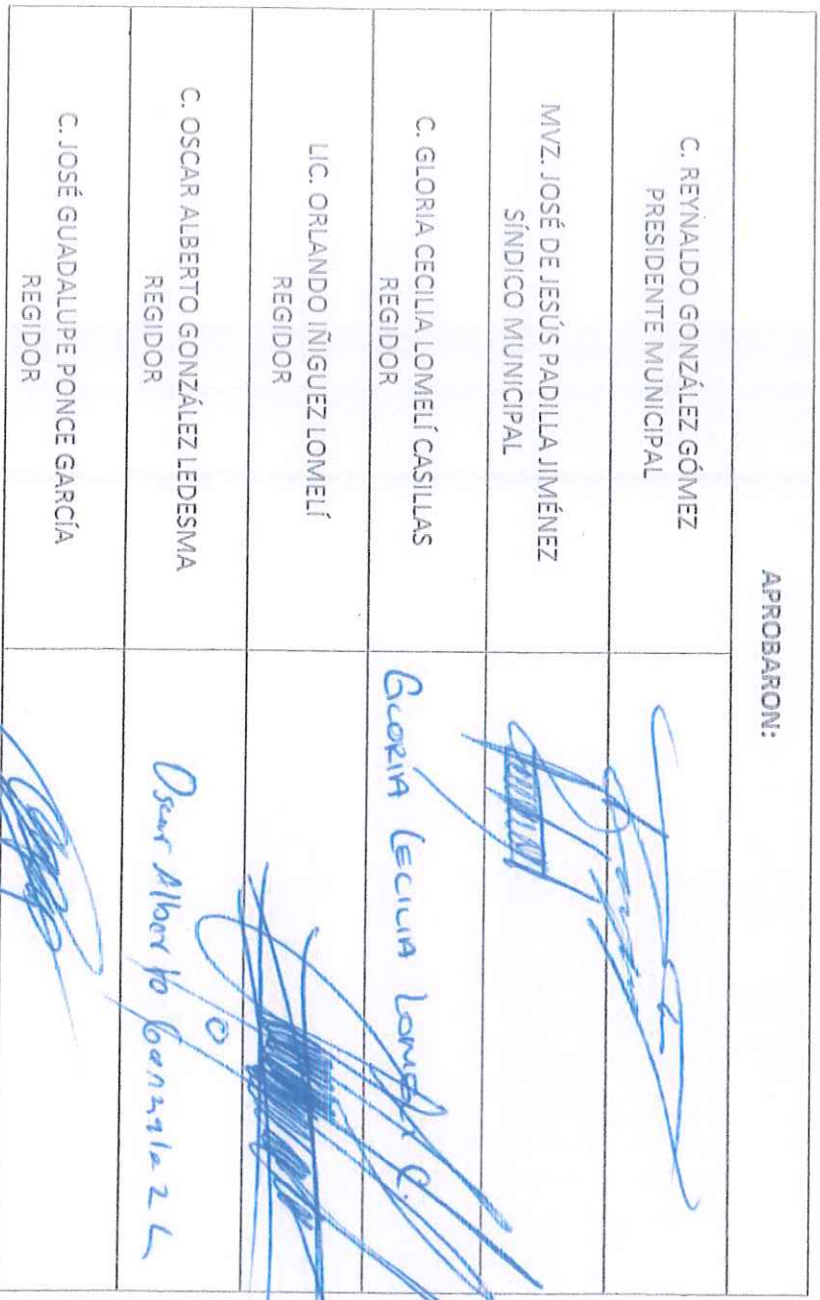 APROBARON:
C. REYNALDO GONZÁLEZ GÓMEZ
PRESIDENTE MUNICIPAL
MVZ. JOSÉ DE JESÚS PADILLA JIMÉNEZ
SÍNDICO MUNICIPAL
C. GLORIA CECILIA LOMELÍ CASILLAS
REGIDOR
GLORIA CECILIA LOMELÍ C.
LIC. ORLANDO IÑIGUEZ LOMELÍ
REGIDOR
C. OSCAR ALBERTO GONZÁLEZ LEDESMA
REGIDOR
Oscar Alberto Gonzalez L
C. JOSÉ GUADALUPE PONCE GARCÍA
REGIDOR